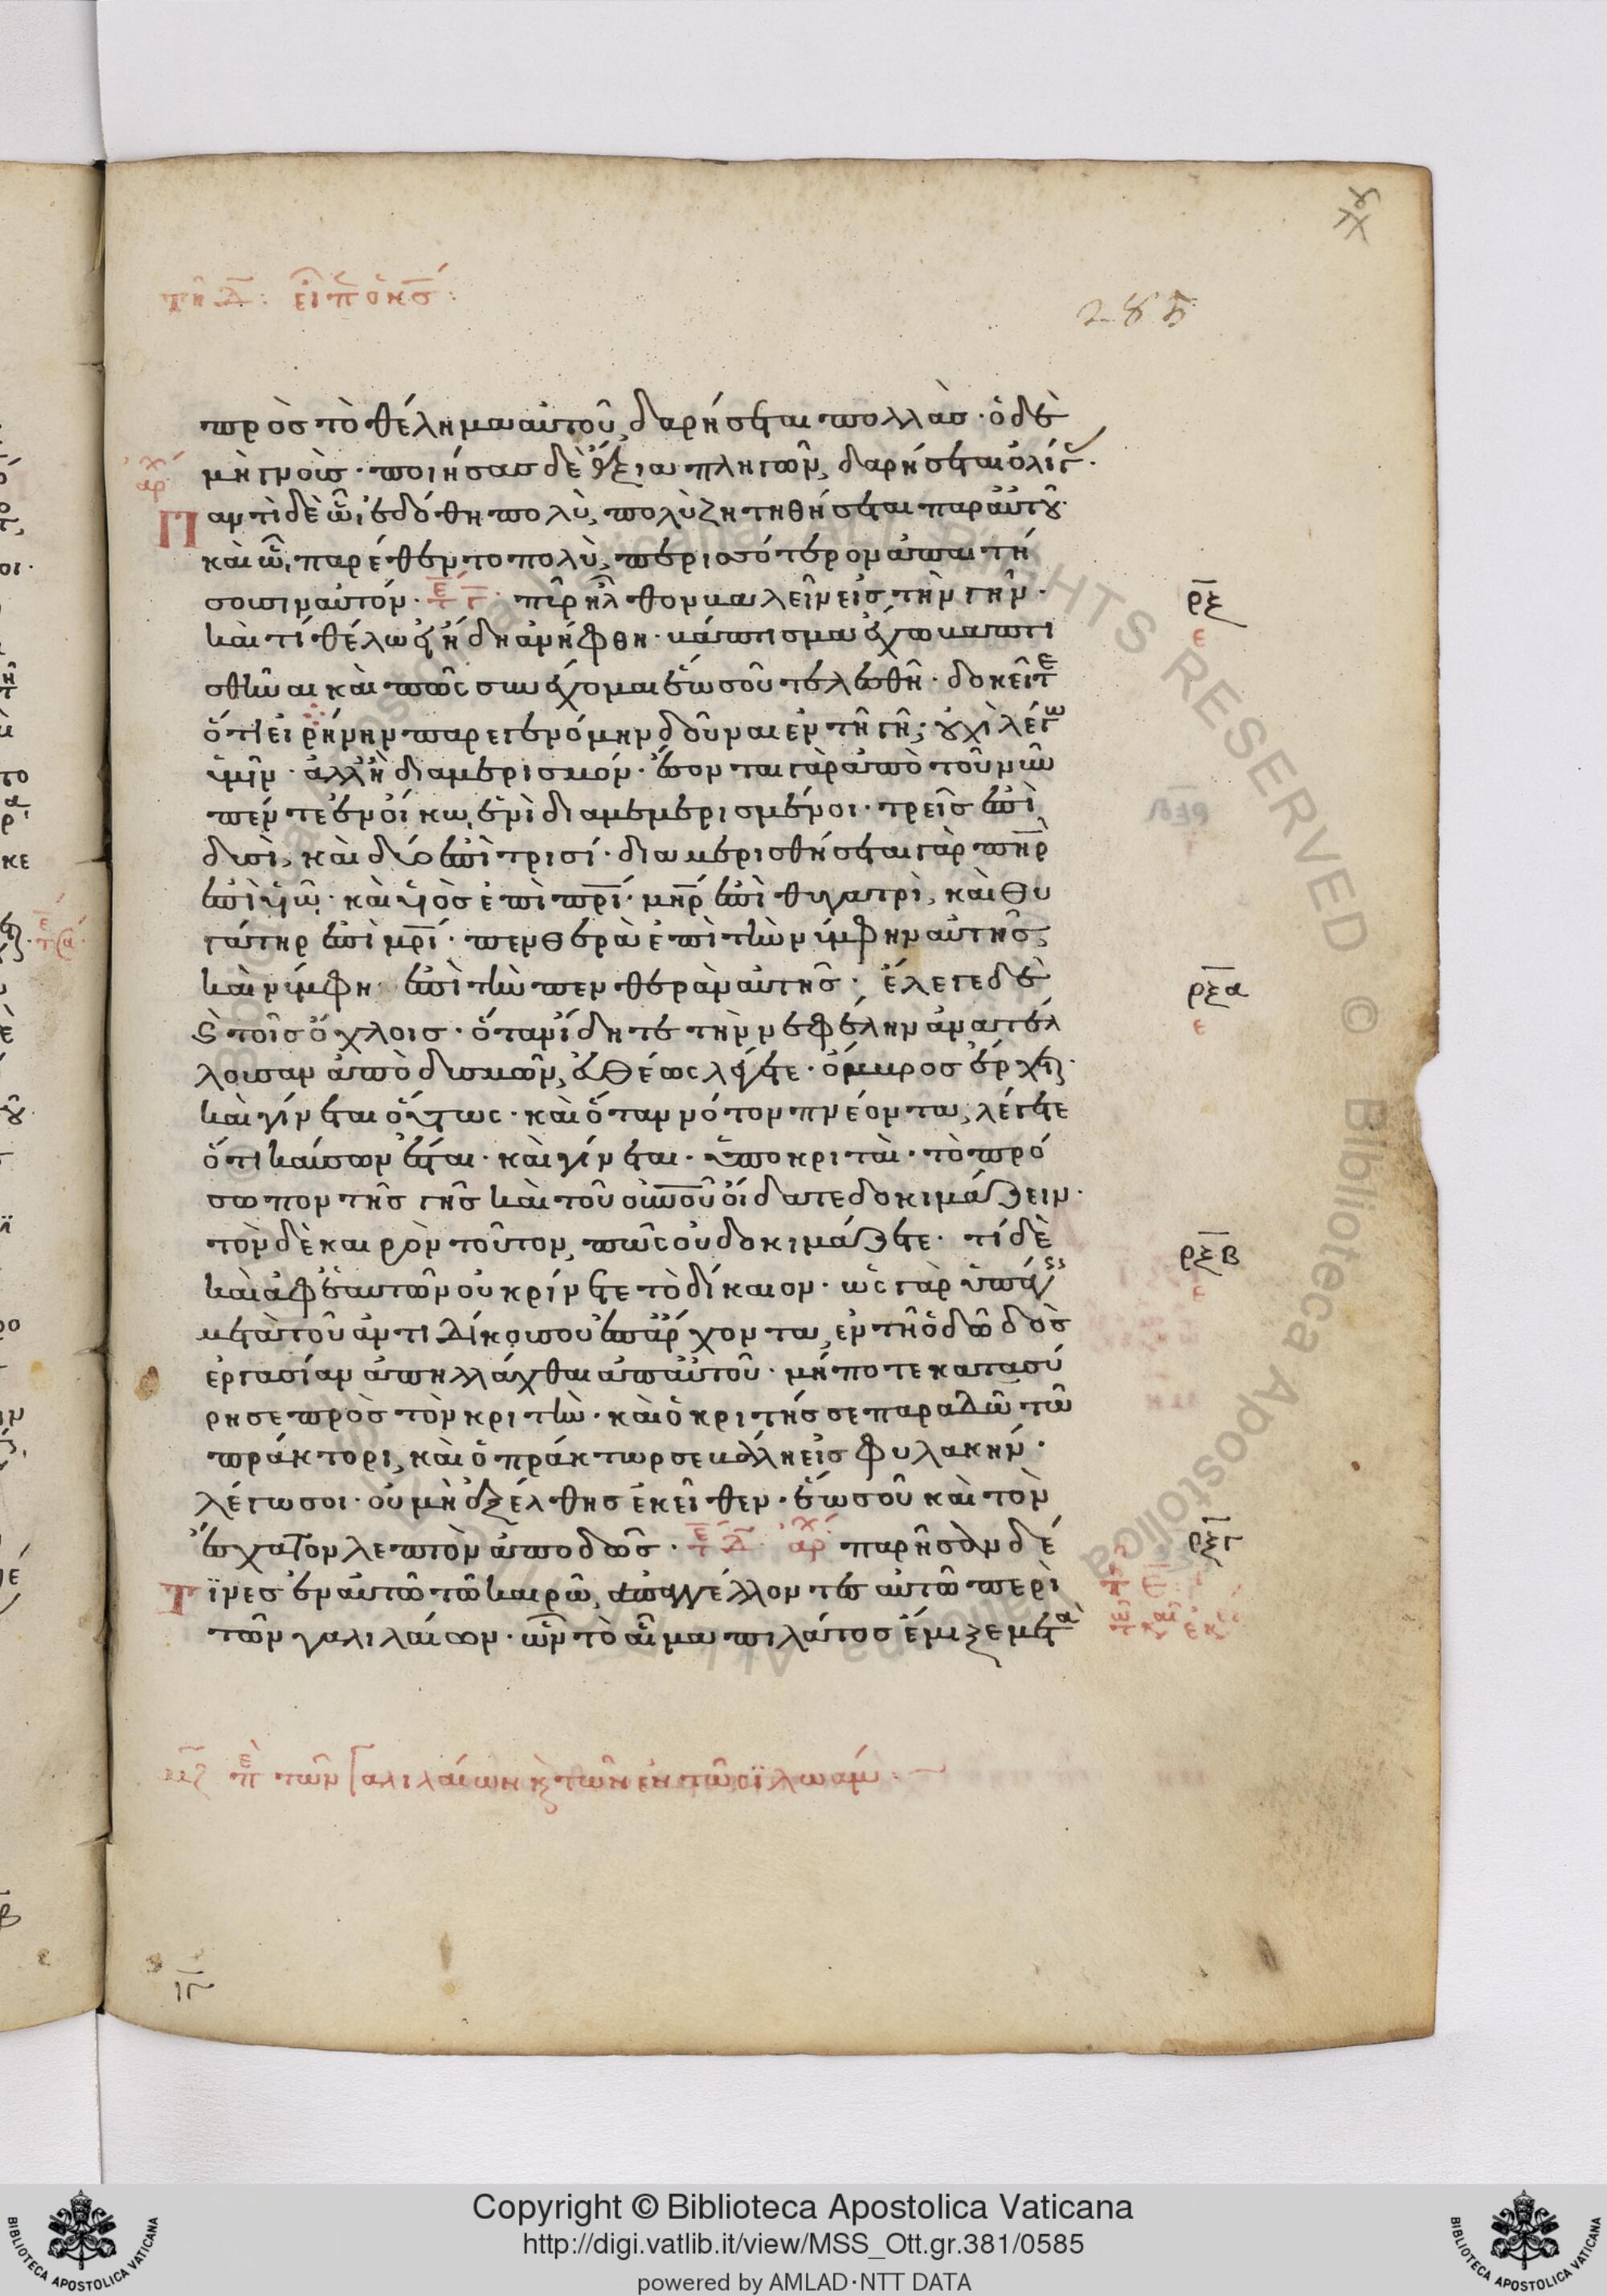 τῆ Δ: εἶπ ὁ κς:
285
πρὸς τὸ θέλημα αὐτοῦ, δαρήσεται πολλάσ· ὁ δὲ
μὴ γνοὺσ· ποιήσασ δὲ ἄξια πληγῶν, δαρήσεται ὀλίγ.
Παντὶ δὲ ὧ, ἐδόθη πολὺ, πολὺ ζητηθήσεται παρ αὐτοῦ·
καὶ ὧ, παρέθεντο πολὺ, περισσότερον ἀπαιτή
σουσιν αὐτόν· πῦρ ἦλθον βαλεῖν εἰς τὴν γῆν·
καὶ τί θέλω εἰ ἤδη ἀνήφθη· βάπτισμα ἔχω βαπτι
σθῆναι καὶ πῶς συνέχομαι ἕως οὗ τελεσθῆ· δοκεῖτε
ὅτι εἰρήνην παρεγενόμην δοῦναι ἐν τῆ γῆ; οὐχὶ λέγω
ὑμῖν· ἀλλ' ἢ διαμερισμόν· ἔσονται γὰρ ἀπὸ τοῦ νῦν
πέντε ἐν οἴκω, ἑνὶ διαμεμερισμένοι· τρεῖς ἐπὶ
δυσὶ, καὶ δύο ἐπὶ τρισί· διαμερισθήσεται γὰρ πηρ
ἐπὶ υἱῶ· καὶ υἱὸς ἐπὶ πρι· μηρ ἐπὶ θυγατρὶ, καὶ θυ
γάτηρ ἐπὶ μρι· πενθερὰ ἐπὶ τὴν νύμφην αὐτῆς,
καὶ νύμφη ἐπὶ τὴν πενθερὰν αὐτῆς· ἔλεγε δὲ
καὶ τοῖς ὄχλοις· ὅταν ἴδητε τὴν νεφέλην ἀνατέλ
λουσαν ἀπὸ δυσμῶν, εὐθέως λέγετε· ὄμβρος ἔρχεται·
καὶ γίνεται οὕτως· καὶ ὅταν νότον πνέοντα, λέγετε
ὅτι καύσων ἔσται· καὶ γίνεται· ὑποκριταὶ· τὸ πρό
σωπον τῆς γῆς καὶ τοῦ οὐνου οἴδατε δοκιμάζειν·
τὸν δὲ καιρὸν τοῦτον, πῶς οὐ δοκιμάζετε· τί δὲ
καὶ ἀφ ἑαυτῶν οὐ κρίνετε τὸ δίκαιον· ὡς γὰρ ὑπάγεις
μετὰ τοῦ ἀντιδίκου σου ἐπ ἄρχοντα, ἐν τῆ ὁδῶ δὸς
ἐργασίαν ἀπηλλάχθαι ἀπ αὐτοῦ· μήποτε κατασύ
ρη σε πρὸς τὸν κριτὴν· καὶ ὁ κριτής σε παραδῶ τῶ
πράκτορι, καὶ ὁ πράκτωρ σε βάλη εἰς φυλακήν·
λέγω σοι· οὐ μὴ ἐξέλθης ἐκεῖθεν· ἕως οὗ καὶ τὸν
ἔσχατον λεπτὸν ἀποδῶς· παρῆσαν δέ
Τϊνες ἐν αὐτῶ τῶ καιρῶ, ἀπαγγέλλοντες αὐτῶ περὶ
τῶν γαλιλαίων· ὧν τὸ αἷμα πιλάτος ἔμιξε μετὰ
ρξ
ε
ρξα
ε
ρξβ
ε
ρξγ
πε τῶν Γαλιλαίων κ τῶν ἐν τῶ σϊλωάμ:
Copyright © Biblioteca Apostolica Vaticana
http://digi.vatlib.it/view/MSS_Ott.gr.381/0585
powered by AMLAD·NTT DATA